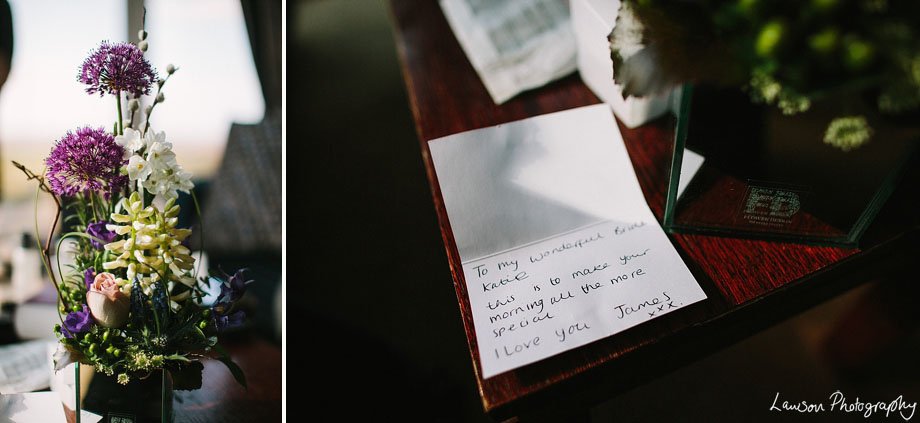 To my Wonderful Bride
Katie
this is to make your
morning all the more
special
I Love You James
xxx
Lawson Photography